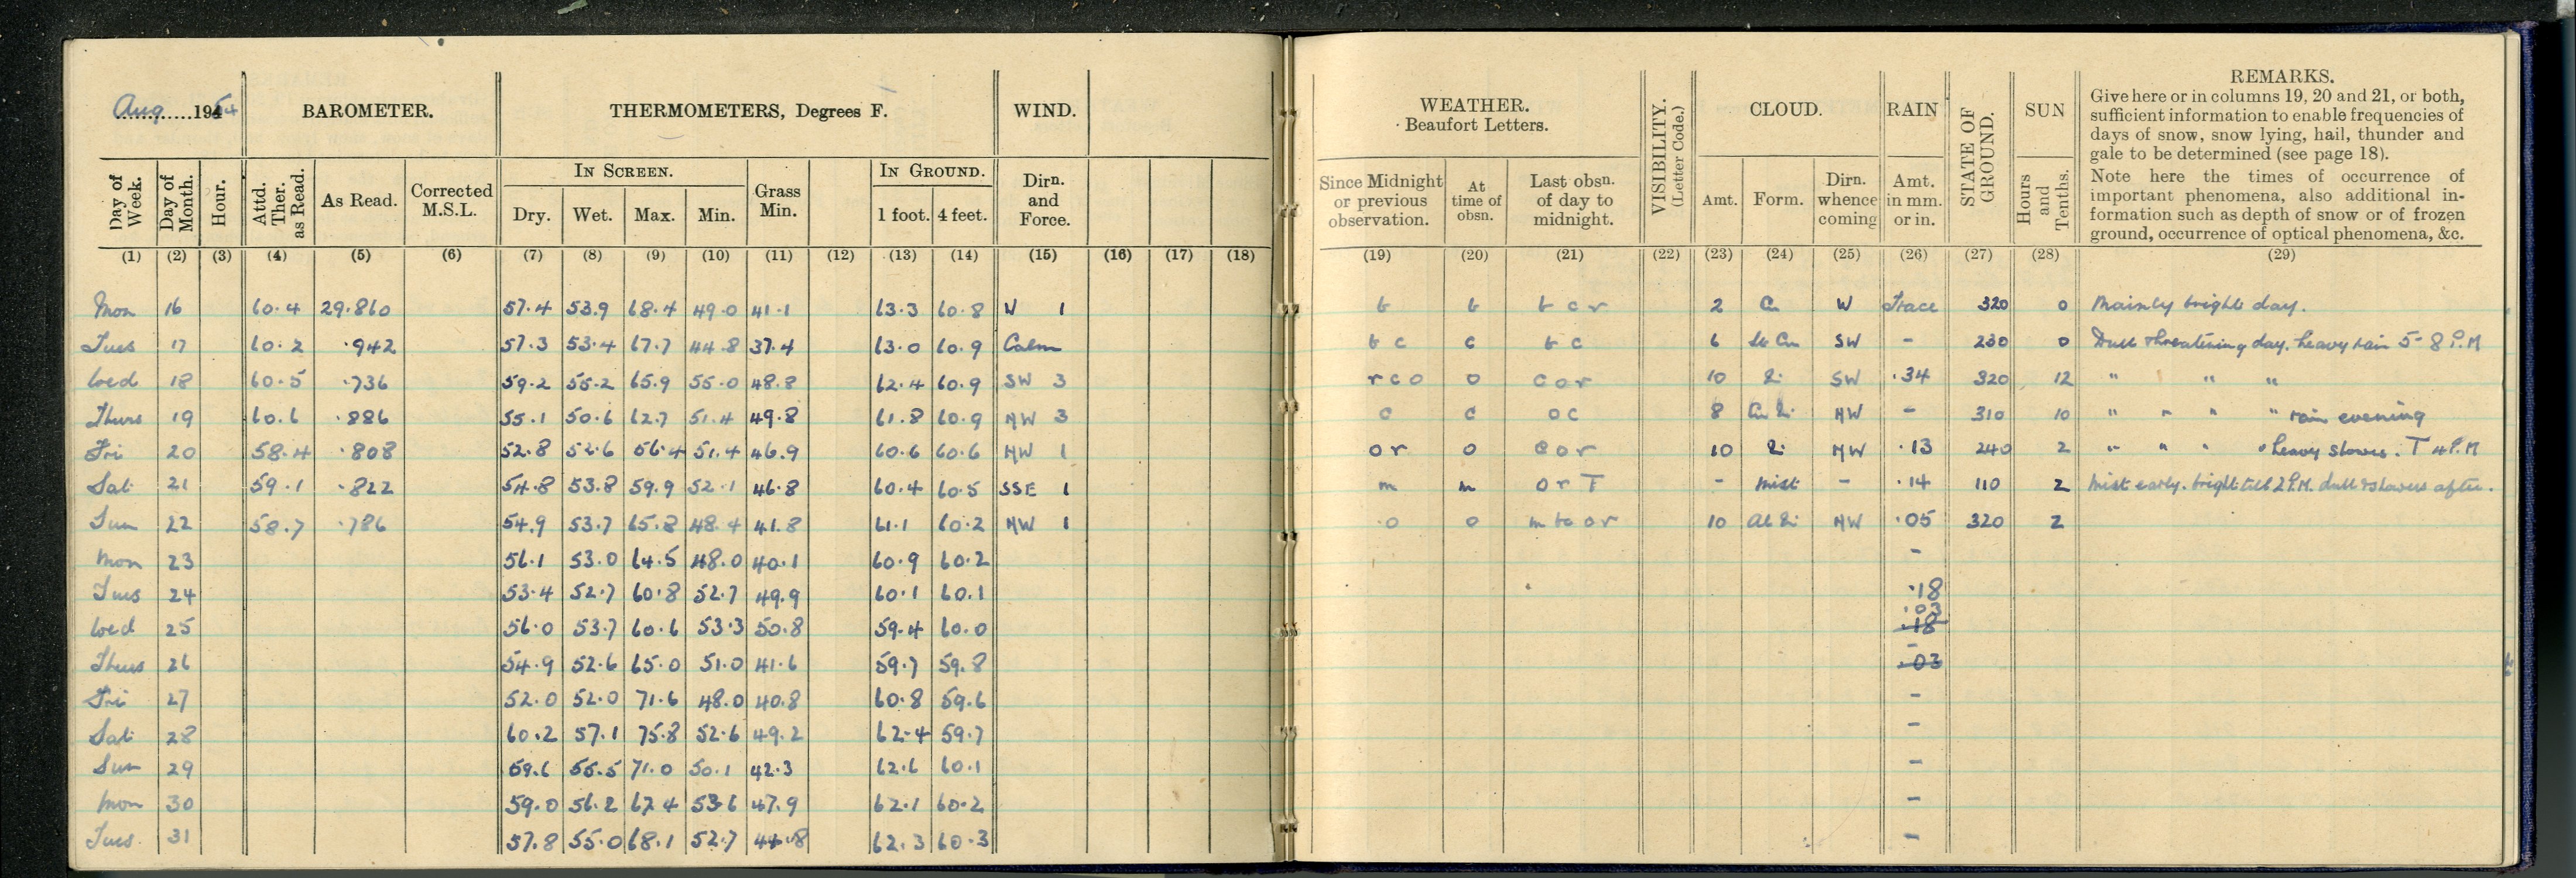 Aug 1954 BAROMETER. THERMOMETERS, Degrees F. WIND.
Day of Week. Day of Month. Hour. Attd. Ther. as Read. As Read. Corrected M.S.L. IN SCREEN. Dry. Wet. Max. Min. Grass Min. IN GROUND. 1 foot. 4 feet. Dirn. and Force.
(1) (2) (3) (4) (5) (6) (7) (8) (9) (10) (11) (12) (13) (14) (15) (16) (17) (18)
Mon 16 60.4 29.860 57.4 53.9 68.4 49.0 41.1 63.3 60.8 W 1
Tues 17 60.2 .942 57.3 53.4 67.7 44.8 37.4 63.0 60.9 Calm
Wed 18 60.5 .736 59.2 55.2 65.9 55.0 48.8 62.4 60.9 SW 3
Thurs 19 60.6 .886 55.1 50.6 62.7 51.4 49.8 61.8 60.9 NW 3
Fri 20 58.4 .808 52.8 52.6 56.4 51.4 46.9 60.6 60.6 NW 1
Sat 21 59.1 .822 54.8 53.8 59.9 52.1 46.8 60.4 60.5 SSE 1
Sun 22 58.7 .786 54.9 53.7 65.8 48.4 41.8 61.1 60.2 NW 1
Mon 23 56.1 53.0 64.5 48.0 40.1 60.9 60.2
Tues 24 53.4 52.7 60.8 52.7 49.9 60.1 60.1
Wed 25 56.0 53.7 60.6 53.3 50.8 59.4 60.0
Thurs 26 54.9 52.6 65.0 51.0 41.6 59.7 59.8
Fri 27 52.0 52.0 71.6 48.0 40.8 60.8 59.6
Sat 28 60.2 57.1 75.8 52.6 49.2 62.4 59.7
Sun 29 59.6 55.5 71.0 50.1 42.3 62.6 60.1
Mon 30 59.0 56.2 67.4 53.6 47.9 62.1 60.2
Tues 31 57.8 55.0 68.1 52.7 44.8 62.3 60.3
WEATHER. Beaufort Letters. VISIBILITY. (Letter Code.) CLOUD. RAIN STATE OF GROUND. SUN
REMARKS.
Give here or in columns 19, 20 and 21, or both,
sufficient information to enable frequencies of
days of snow, snow lying, hail, thunder and
gale to be determined (see page 18).
Note here the times of occurrence of
important phenomena, also additional in-
formation such as depth of snow or of frozen
ground, occurrence of optical phenomena, &c.
Since Midnight or previous observation. At time of obsn. Last obsn. of day to midnight. Amt. Form. Dirn. whence coming Amt. in mm. or in. Hours and Tenths.
(19) (20) (21) (22) (23) (24) (25) (26) (27) (28) (29)
b b b c r 2 Cu W Trace 320 0 Mainly bright day.
b c c b c 6 St Cu SW - 230 0 Dull threatening day. heavy rain 5-8 P.M
r c o o c o r 10 SW .34 320 12 " " "
c c o c 8 NW - 310 10 " " " " rain evening
o r o c o r 10 NW .13 240 2 " " " heavy showers. T 4 P.M
m m o r T - Mist - .14 110 2 Mist early. bright till 2 P.M. dull & showers after.
o o m bc o r 10 NW .05 320 2
-
.18
.03
.18
-
.03
-
-
-
-
-